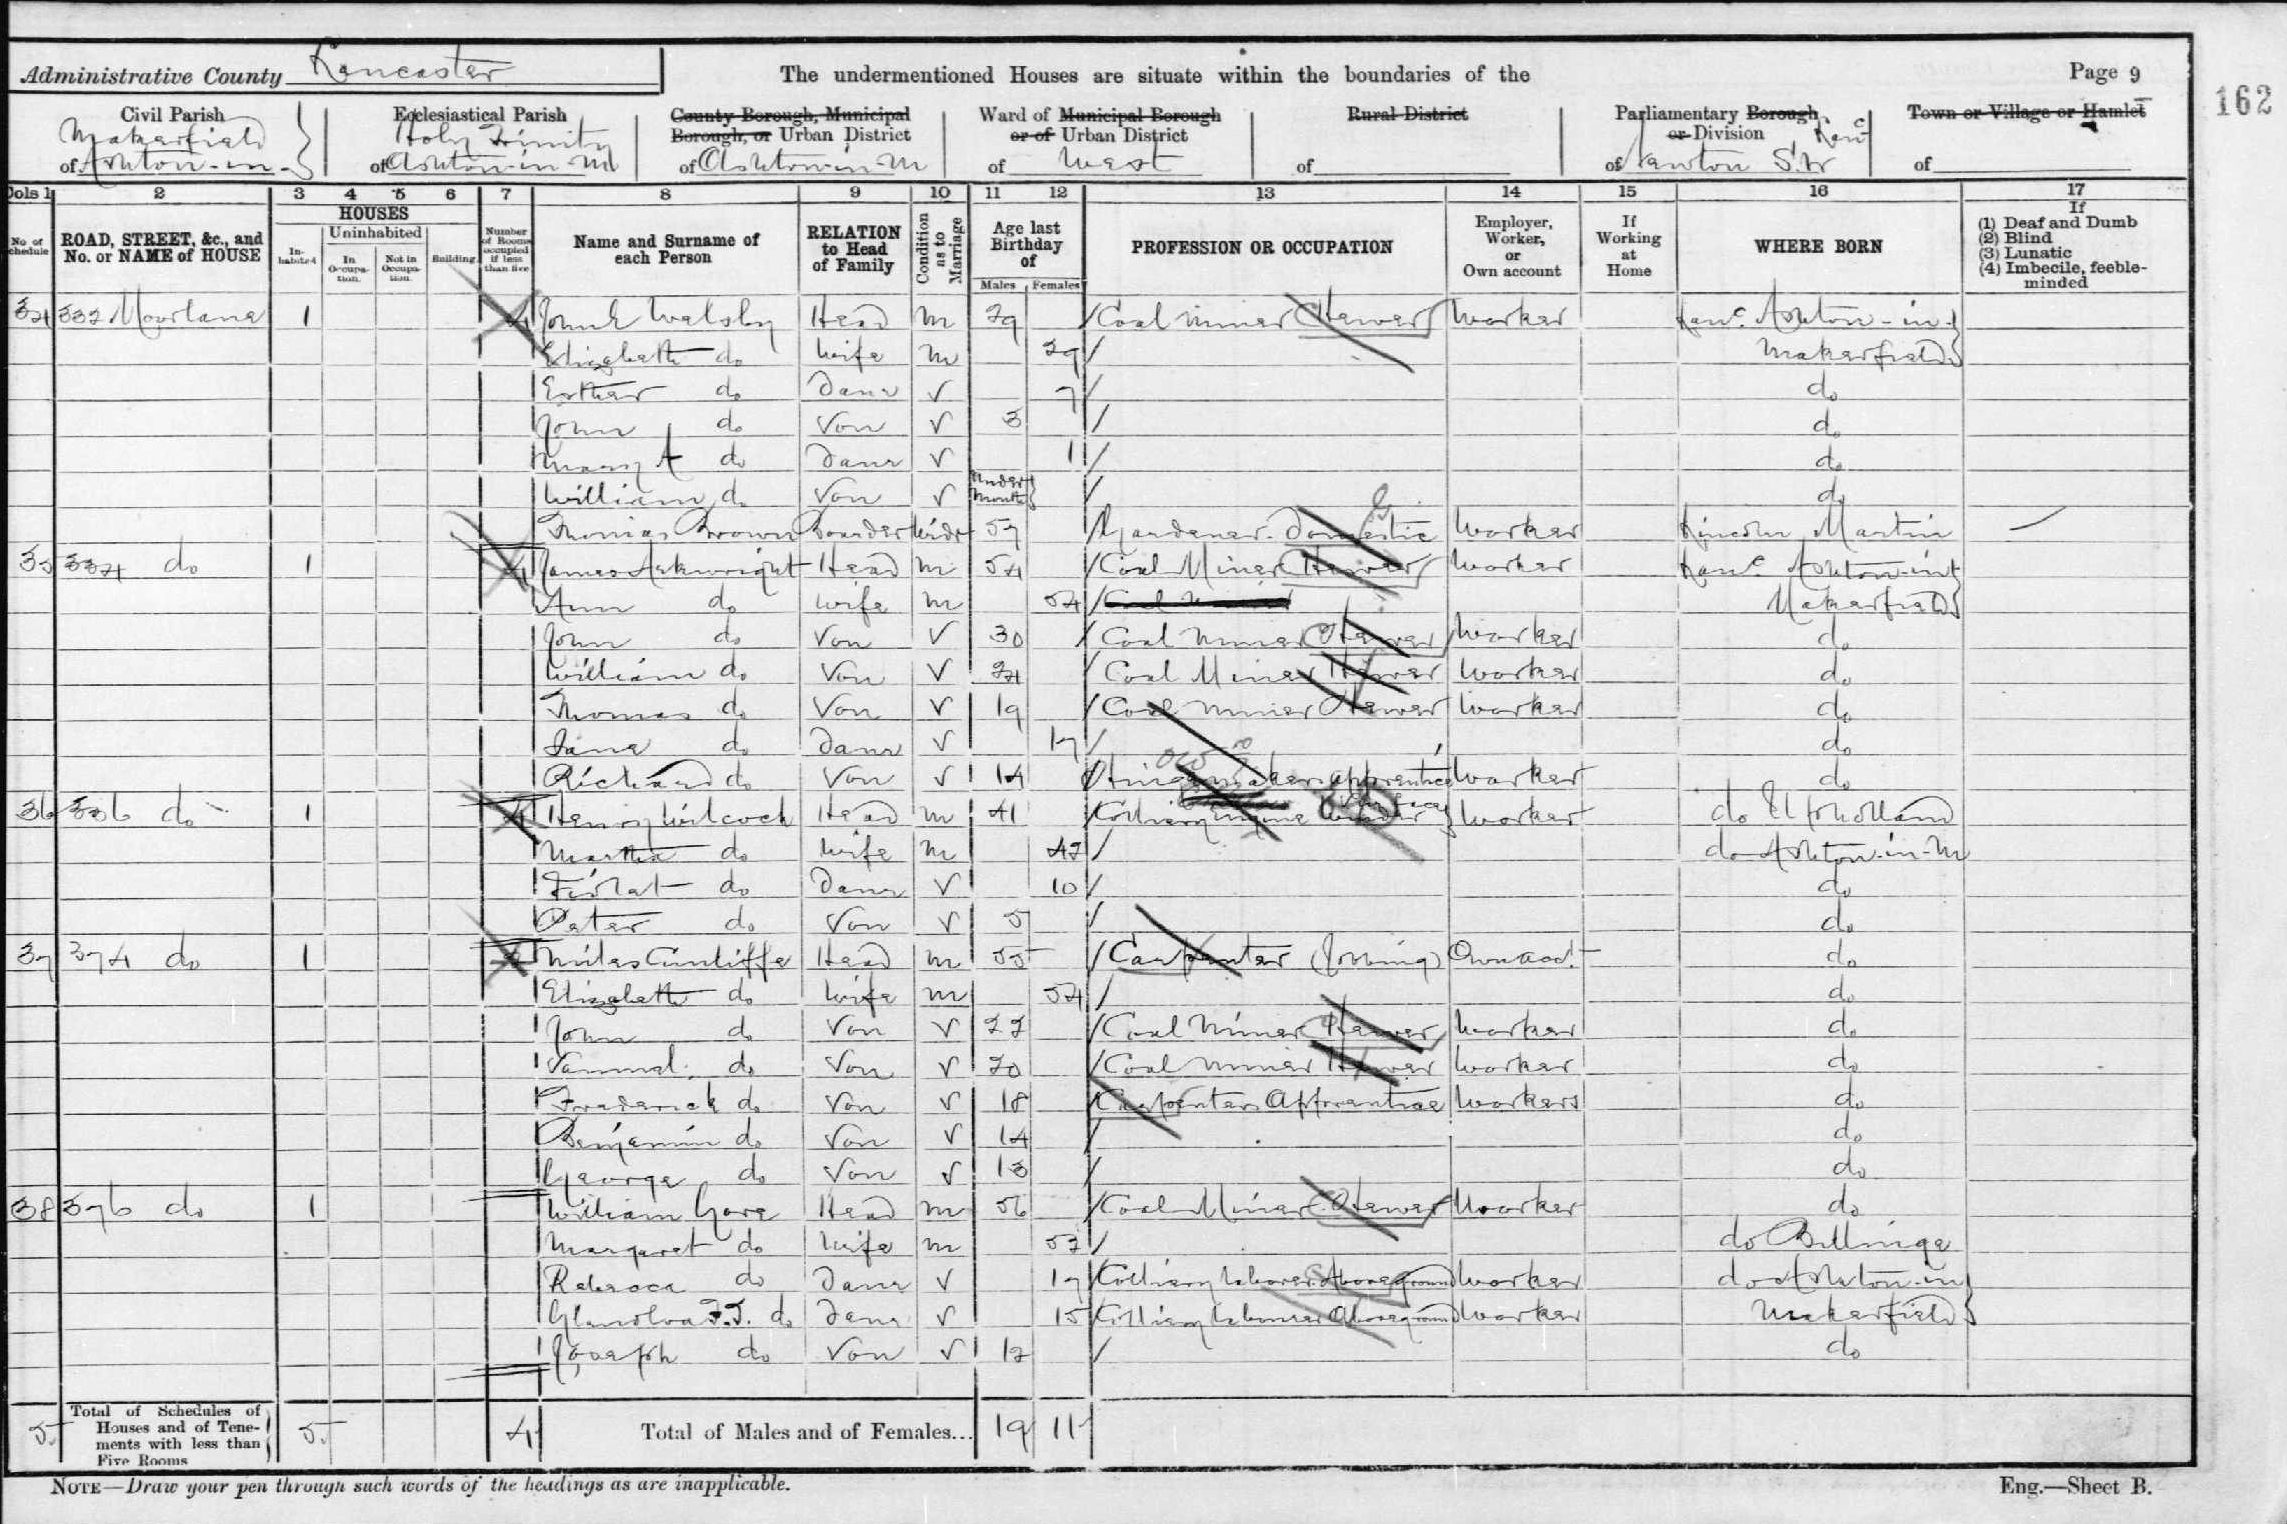 Administrative County Lancaster The undermentioned Houses are situate within the boundaries of the Page 9
162
Civil Parish Ecclesiastical Parish County Borough, Municipal Ward of Municipal Borough Rural District Parliamentary Borough Town or Village or Hamlet
Makerfield Holy Trinity Borough, or Urban District or of Urban District or Division Lanc
of Ashton-in- of Ashton-in-M of Ashton-in-M of West of of Newton S.W of
Cols 1 2 3 4 5 6 7 8 9 10 11 12 13 14 15 16 17
No of Schedule ROAD, STREET, &c., and No. or NAME of HOUSE HOUSES In-habited Uninhabited In Occupa-tion. Not in Occupa-tion. Building Number of Rooms occupied if less than five Name and Surname of each Person RELATION to Head of Family Condition as to Marriage Age last Birthday of Males Females PROFESSION OR OCCUPATION Employer, Worker, or Own account If Working at Home WHERE BORN If (1) Deaf and Dumb (2) Blind (3) Lunatic (4) Imbecile, feeble-minded
34 332 Moorlane 1 4 John E Welsby Head M 29 Coal Miner Hewer Worker Lanc. Ashton-in-
Elizabeth do Wife M 29 Makerfield
Esther do Daur 7 do
John do Son 3 do
Mary A do Daur 1 do
William do Son Under Month do
Thomas Brown Boarder Widr 57 Gardener. Domestic Worker Lincoln Martin
35 334 do 1 4 James Arkwright Head M 54 Coal Miner Hewer Worker Lanc. Ashton-in
Ann do Wife M 54 Makerfield
John do Son 30 Coal Miner Hewer Worker do
William do Son 24 Coal Miner Hewer Worker do
Thomas do Son 19 Coal Miner Hewer Worker do
Jane do Daur 17 do
Richard do Son 14 Hinge maker apprentice Worker do
36 336 do 1 4 Henry Wilcock Head M 41 Colliery Engine Winder Worker do Upholland
Martha do Wife M 42 do Ashton-in-M
do Daur 10 do
Peter do Son 5 do
37 374 do 1 4 Miles Cunliffe Head M 55 Carpenter (Jobbing) Own acct. do
Elizabeth do Wife M 54 do
John do Son 22 Coal Miner Hewer Worker do
Samuel do Son 20 Coal Miner Hewer Worker do
Frederick do Son 18 Carpenters Apprentice Workers do
Benjamin do Son 14 do
George do Son 13 do
38 376 do 1 William Gore Head M 56 Coal Miner Hewer Worker do
Margaret do Wife M 52 do Billinge
Rebecca do Daur 17 Colliery Laborer Aboveground Worker do Ashton-in
do Daur 15 Colliery Labourer Aboveground Worker Makerfield
Joseph do Son 12 do
5 Total of Schedules of Houses and of Tene-ments with less than Five Rooms 5 4 Total of Males and of Females... 19 11
NOTE—Draw your pen through such words of the headings as are inapplicable. Eng.—Sheet B.